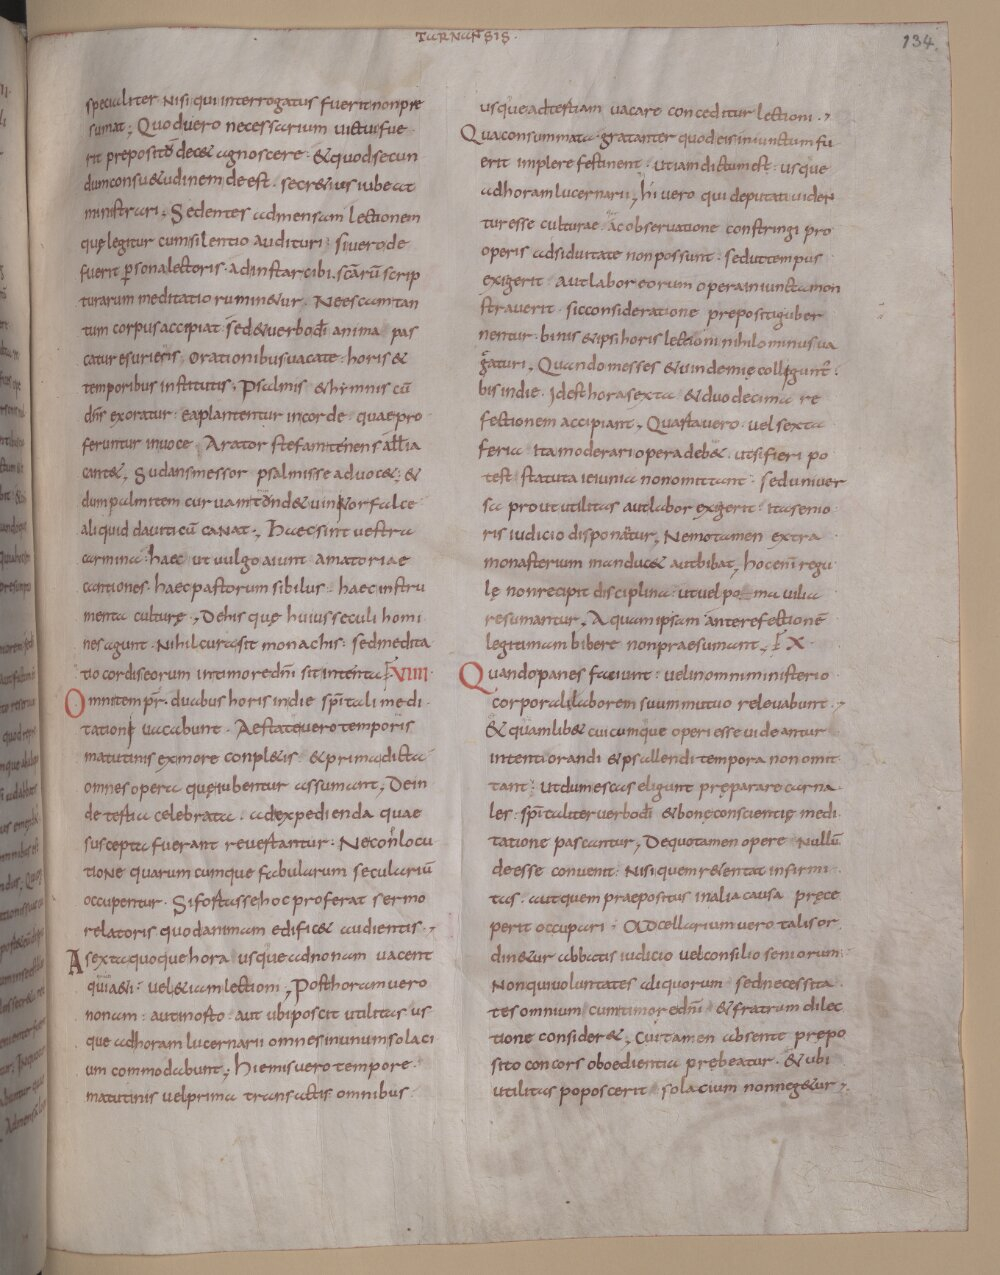 TARNAŃSIS
134
specialiter nisi qui interrogatus fuerit non pre
sumat; Quod uero necessarium uictui fue
rit preposito decet agnoscere · & quod secun
dum consu&udinem deest · secr&ius iubeat
ministrari; Sedentes ad mensam lectionem
quę legitur cum silentio audituri · si uero de
fuerit psona lectoris · ad instar cibi · scārū scrip
turarum meditatio rumin&ur · Ne escam tan
tum corpus accipiat · sed & uerbo dī anima pas
catur esuriens · orationibus uacate · horis &
temporibus institutis; Psalmis & hymnis cū
dn̄s exoratur · ea plantentur in corde · quae pro
feruntur in uoce; Arator stefam tenens all̄ia
cant&; Sudans messor psalmis se aduoc& · &
dum palmitem curuam tond& uinitor falce
aliquid dauiticū canat; Haec sint uestra
carmina · haec ut uulgo aiunt amatoriae
cantiones · haec pastorum sibilus · haec instru
menta culturę; De his quę huius seculi homi
nes agunt · Nihil cura sit monachis · sed medita
tio cordis eorum in timore dn̄i sit intenta; VIIII
Omni tempr̄ · duabus horis in die sp̄itali medi
tationi uacabunt · Aestate uero temporis
matutinis ex more conpl&is · & prima dicta
omnes opera quę iubentur assumant; Dein
de tertia celebrata · ad expedienda quae
suscepta fuerant reuertantur · Nec conlocu
tione quarumcumque fabularum secularium
occupentur · Si fortasse hoc proferat sermo
relatoris quod animam edific& audientis ·
A sexta quoque hora usque ad nonam uacent
qui&i · uel &iam lectioni; Post horam uero
nonam · aut in orto · aut ubi poscit utilitas us
que ad horam lucernarii omnes in unum solaci
um commodabunt; Hiemis uero tempore ·
matutinis uel prima transactis omnibus
usque ad tertiam uacare conceditur lectioni ·
Qua consummata · gratanter quod eis iniunctum fu
erit implere festinent · ut iam dictum est · usque
ad horam lucernarii; hi uero qui deputati uiden
tur esse culturae · ac obseruatione constringi pro
operis adsiduitate non possunt · sed ut tempus
exigerit · aut labor eorum opera iniuncta mon
strauerit · sic consideratione prepositi guber
nentur · binis & ipsi horis lectioni nihilominus ua
gaturi; Quando messes & uindemię colliguntr̄ ·
bis in die · Id est hora sexta & duodecima re
fectionem accipiant; Quarta uero · uel sexta
feria · Ita moderari opera deb& · ut si fieri po
test · statuta ieiunia non omittant · sed uniuer
sa prout utilitas aut labor exigerit · Ita senio
ris iudicio disponatur; Nemo tamen extra
monasterium manduc& aut bibat; hoc enī regu
lę non recipit disciplina · ut uel poma uilia
resumantur; Aquam ipsam ante refectionē
legitimam bibere non praesumant; X
Quando panes faciunt · uel in omni ministerio
corporali laborem suum mutuo releuabunt ·
& quamlib& cuicumque operi esse uideantur
intenti orandi & psallendi tempora non omit
tant · Ut dum escas eligunt pręparare carna
les · sp̄italiter uerbo dī & bonę conscientię medi
tatione pascantur; De quo tamen opere Nullū
deesse conuenit · Nisi quem res̄entat infirmi
tas · aut quem praepositus in alia causa prece
perit occupari · Ad cellarium uero talis or
din&ur abbatis iudicio uel consilio seniorum ·
Non qui uoluntates aliquorum · sed necessita
tes omnium cum timore dn̄i & fratrum dilec
tione consider&; Cui tamen absente prepo
sito concors oboedientia prębeatur · & ubi
utilitas poposcerit solacium non neg&ur;